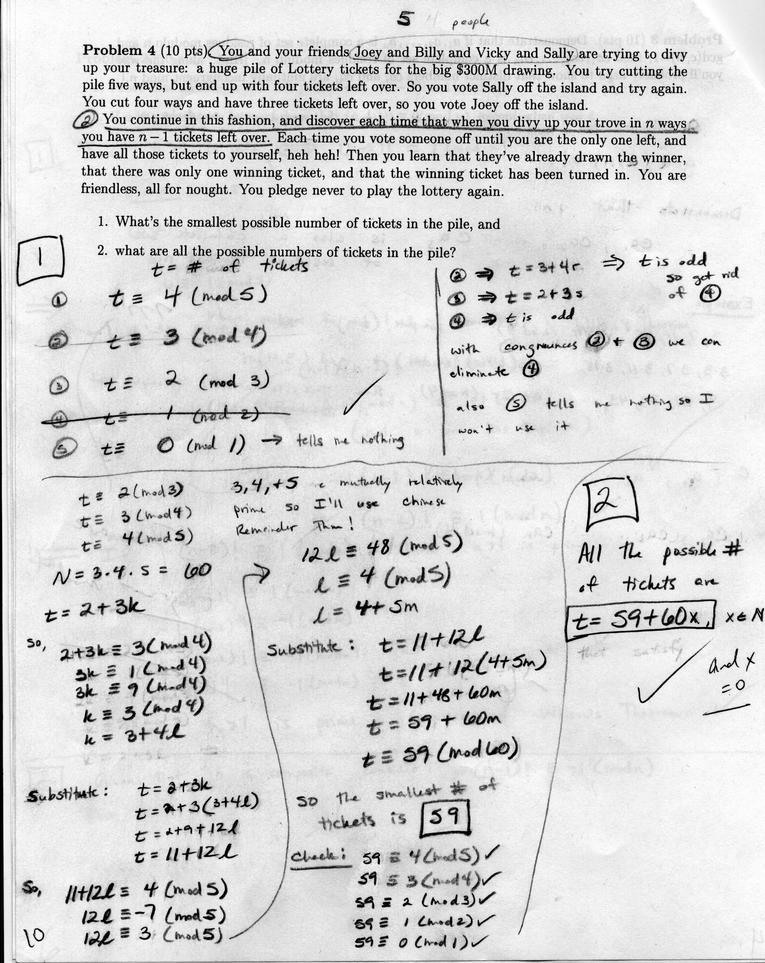 5 4 people
Problem 4 (10 pts) You and your friends Joey and Billy and Vicky and Sally are trying to divy
up your treasure: a huge pile of Lottery tickets for the big $300M drawing. You try cutting the
pile five ways, but end up with four tickets left over. So you vote Sally off the island and try again.
You cut four ways and have three tickets left over, so you vote Joey off the island.
② You continue in this fashion, and discover each time that when you divy up your trove in n ways
you have n − 1 tickets left over. Each time you vote someone off until you are the only one left, and
have all those tickets to yourself, heh heh! Then you learn that they've already drawn the winner,
that there was only one winning ticket, and that the winning ticket has been turned in. You are
friendless, all for nought. You pledge never to play the lottery again.
1. What's the smallest possible number of tickets in the pile, and
2. what are all the possible numbers of tickets in the pile?
1
t = # of tickets
① t ≡ 4 (mod 5)
② t ≡ 3 (mod 4)
③ t ≡ 2 (mod 3)
④ t ≡ 1 (mod 2)
⑤ t ≡ 0 (mod 1) → tells me nothing
② ⇒ t = 3+4r ⇒ t is odd
so get rid
of ④
③ ⇒ t = 2+3s
④ ⇒ t is odd
with congruences ② + ③ we can
eliminate ④
also ⑤ tells me nothing so I
won't use it
t ≡ 2 (mod 3)
t ≡ 3 (mod 4)
t ≡ 4 (mod 5)
3, 4, + 5 are mutually relatively
prime so I'll use Chinese
Remainder Thm!
N = 3·4·5 = 60
t = 2+3k
So, 2+3k ≡ 3 (mod 4)
3k ≡ 1 (mod 4)
3k ≡ 9 (mod 4)
k ≡ 3 (mod 4)
k = 3+4l
Substitute: t = 2+3k
t = 2+3(3+4l)
t = 2+9+12l
t = 11+12l
So, 11+12l ≡ 4 (mod 5)
12l ≡ -7 (mod 5)
12l ≡ 3 (mod 5)
10
12l ≡ 48 (mod 5)
l ≡ 4 (mod 5)
l = 4+5m
Substitute: t = 11+12l
t = 11+12(4+5m)
t = 11+48+60m
t = 59+60m
t ≡ 59 (mod 60)
SO the smallest # of
tickets is 59
Check: 59 ≡ 4 (mod 5) ✓
59 ≡ 3 (mod 4) ✓
59 ≡ 2 (mod 3) ✓
59 ≡ 1 (mod 2) ✓
59 ≡ 0 (mod 1) ✓
2
All the possible #
of tickets are
t = 59+60x, x∈N
and x
=0